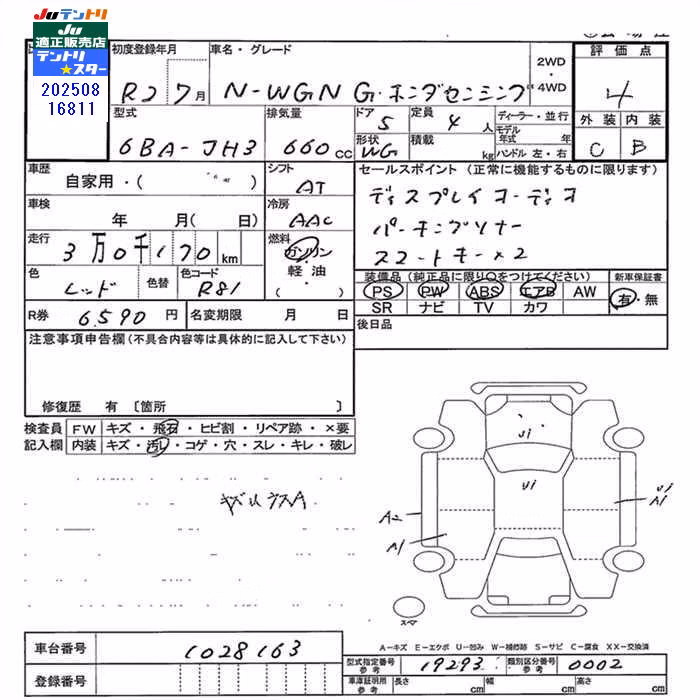 Juテントリ
Ju
適正販売店
テントリ
★スター
202508
16811
初度登録年月
R2 7月
車名・グレード
N-WGN G・ホンダセンシング
2WD・4WD
評価点
4
外装 内装
C B
型式
6BA-JH3
排気量
660cc
ドア
5
定員
4人
ディーラー・並行
形状
WG
積載
kg
モデル年式 年
ハンドル 左・右
車歴
自家用・( )
シフト
AT
車検
年 月( 日)
冷房
AAC
走行
3万0千170km
燃料
ガソリン・軽油・( )
色
レッド
色替
色コード
R81
セールスポイント (正常に機能するものに限ります)
ディスプレイオーディオ
パーキングソナー
スマートキー×2
装備品(純正品に限り○をつけてください)
PS PW ABS エアB AW
SR ナビ TV カワ
新車保証書
有・無
R券 6,590円
名変期限 月 日
後日品
注意事項申告欄(不具合内容等は具体的に記入して下さい)
修復歴 有〔箇所 〕
検査員記入欄
FW キズ・飛石・ヒビ割・リペア跡・×要
内装 キズ・汚レ・コゲ・穴・スレ・キレ・破レ
A2
A1
Ui
Ui
Ui
A1
スマ
A-キズ E-エクボ U-凹み W-補修跡 S-サビ C-腐食 XX-交換済
車台番号 1028163
登録番号
型式指定番号 参考 19293
類別区分番号 参考 0002
車庫証明用 参考 長さ cm 幅 cm 高さ cm